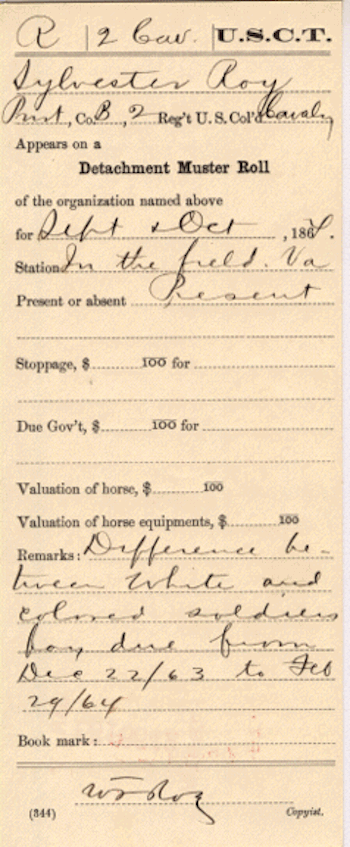 R | 2 Cav. | U.S.C.T.
Sylvester Roy
Pvt, Co. B, 2 Reg't U.S. Col'd Cavalry
Appears on a
Detachment Muster Roll
of the organization named above
for Sept & Oct, 1864.
Station In the field. Va
Present or absent Present
Stoppage, $ 100 for
Due Gov't, $ 100 for
Valuation of horse, $ 100
Valuation of horse equipments, $ 100
Remarks: Difference be-
tween White and
colored soldiers
pay due from
Dec 22/63 to Feb
29/64
Book mark:
(344) Copyist.